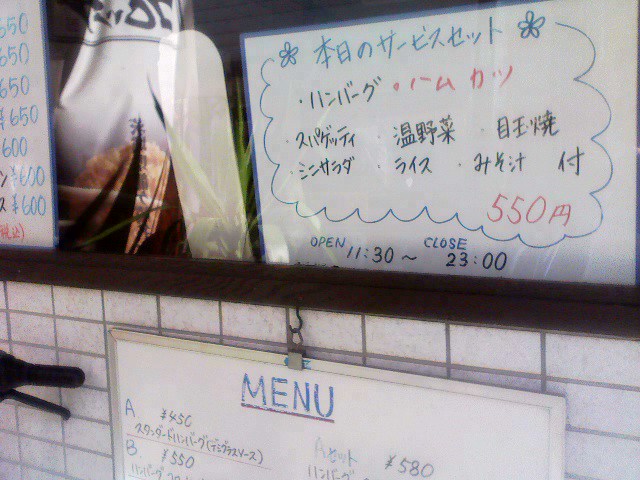 650
650
650
¥650
600
ン¥600
ス¥600
(税込)
本日のサービスセット
・ハンバーグ ・ハムカツ
・スパゲッティ ・温野菜 ・目玉焼
・ミニサラダ ・ライス ・みそ汁 付
550円
OPEN 11:30～ CLOSE 23:00
MENU
A. ¥450
スタンダードハンバーグ(デミグラスソース)
B. ¥550
ハンバーグ
Aセット ¥580
ハンバーグ